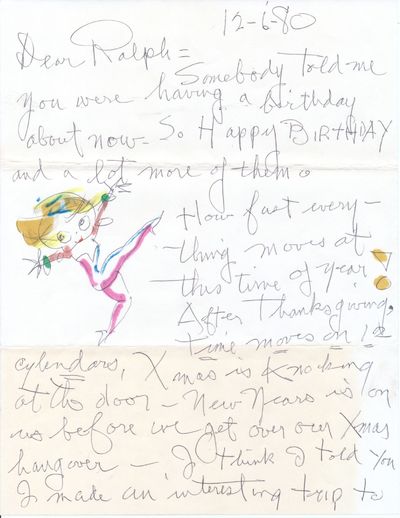 12-6-80
Dear Ralph =
Somebody told me
you were having a birthday
about now - So Happy BIRTHDAY
and a lot more of them.
How fast every-
thing moves at
this time of year!
After Thanksgiving,
Time moves on 12
cylendars, Xmas is Knocking
at the door - New Years is on
us before we get over our Xmas
hangover - I think I told you
I made an interesting trip to